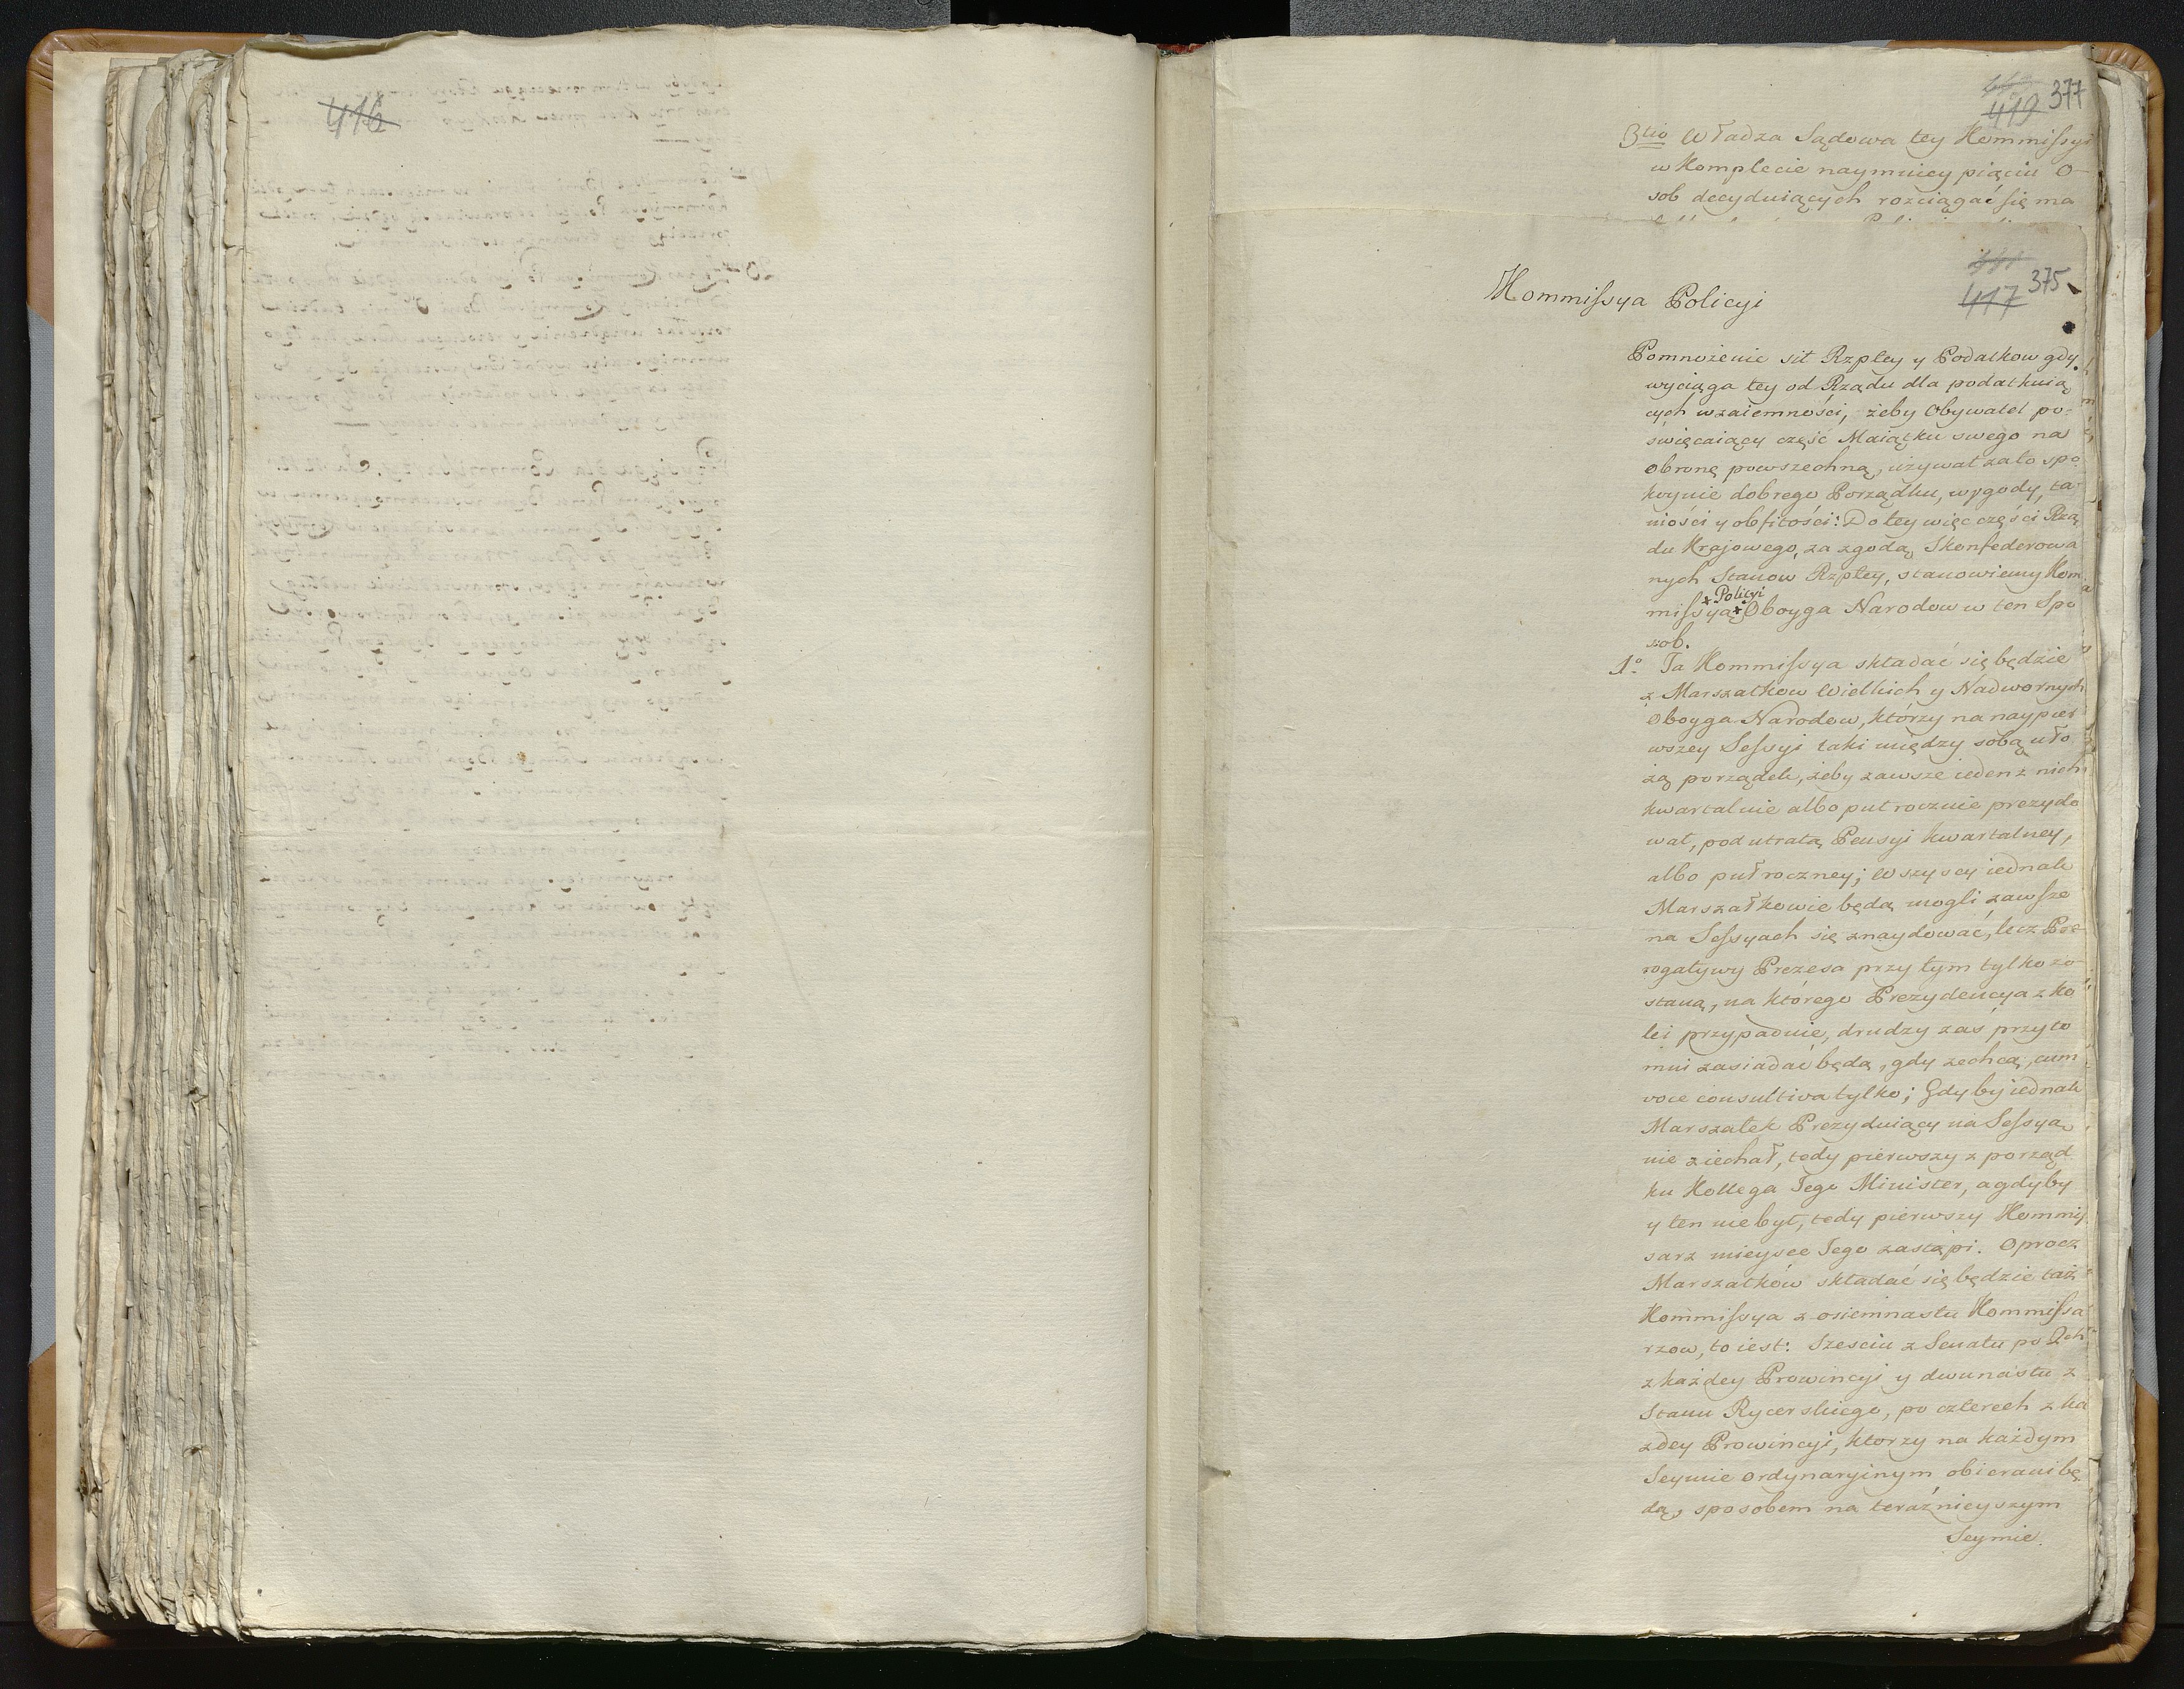 416
419 377
3tio Władza Sądowa tey Kommissyi
w Komplecie naymniey pięciu O-
sob decyduiących rozciągać się ma
417 375
Kommissya Policyi
Pomnożenie sił Rzpltey y Podatkow gdy
wyciąga tey od Rządu dla podatkuią
cych wzaiemności, żeby Obywatel po-
święcaiący część Maiątku swego na
obronę powszechną, używał zato spo
koynie dobrego Porządku, wygody, ta
niości y obfitości: Do tey więc części Rzą
du Krajowego, za zgodą Skonfederowa
nych Stanow Rzpltey, stanowiemy Kom
+ Policyi
missyą + Oboyga Narodow w ten Spo
sob.
1o Ta Kommissya składać się będzie
z Marszałkow Wielkich y Nadwornych
Oboyga Narodow, którzy na naypier
wszey Sessyi taki między sobą uło
żą porządek, żeby zawsze ieden z nich
kwartalnie albo puł rocznie prezydo
wał, pod utratą Pensyi kwartalney,
albo puł roczney; Wszyscy iednak
Marszałkowie będą mogli zawsze
na Sessyach się znaydować, lecz Pre
rogatywy Prezesa przy tym tylko zo-
staną, na którego Prezydencya z ko
lei przypadnie, drudzy zaś przyto
mni zasiadać będą, gdy zechcą, cum
voce consultiva tylko; Gdyby iednak
Marszałek Prezyduiący na Sessyą
nie ziechał, tedy pierwszy z porząd
ku Kollega Jego Minister, a gdyby
y ten nie był, tedy pierwszy Kommis
sarz mieysce Jego zastąpi. Oprocz
Marszałków składać się będzie taż
Kommissya z osiemnastu Kommissa
rzow, to iest: Sześciu z Senatu po 2ch
z każdey Prowincyi y dwunastu z
Stanu Rycerskiego, po czterech z ka
żdey Prowincyi, ktorzy na każdym
Seymie ordynaryinym obierani bę
dą, sposobem na teraźnieyszym
Seymie.